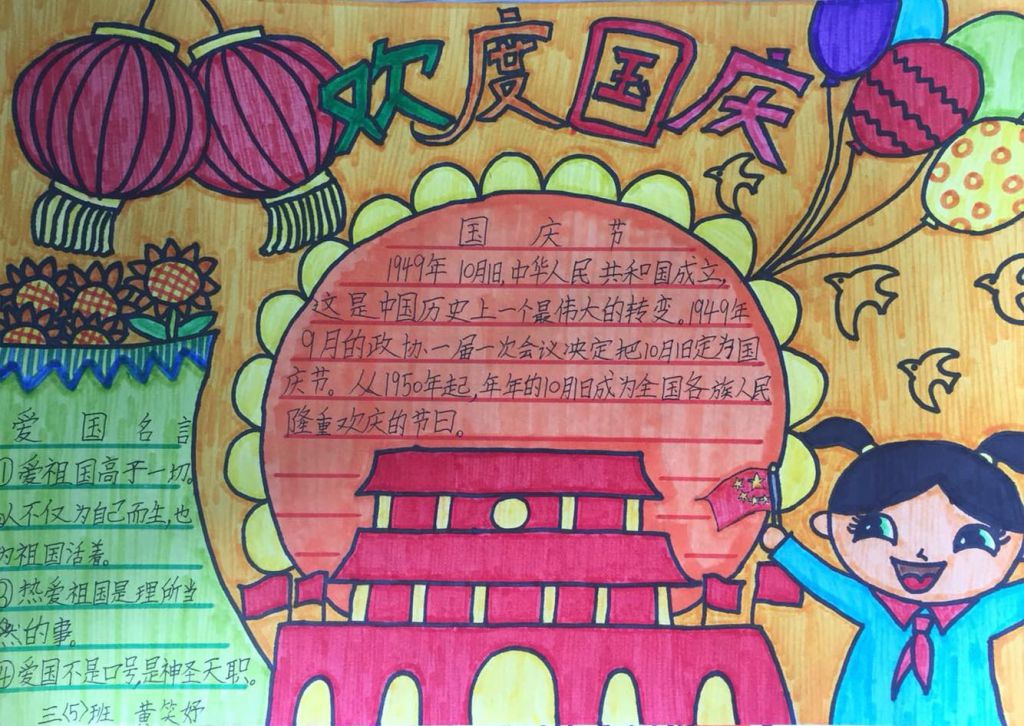 欢度国庆
国庆节
1949年10月1日,中华人民共和国成立,
这是中国历史上一个最伟大的转变。1949年
9月的政协一届一次会议决定把10月1日定为国
庆节。从1950年起,年年的10月1日成为全国各族人民
隆重欢庆的节日。
爱国名言
①爱祖国高于一切。
人不仅为自己而生,也
为祖国活着。
③热爱祖国是理所当
然的事。
④爱国不是口号,是神圣天职。
三(5)班 黄笑妤